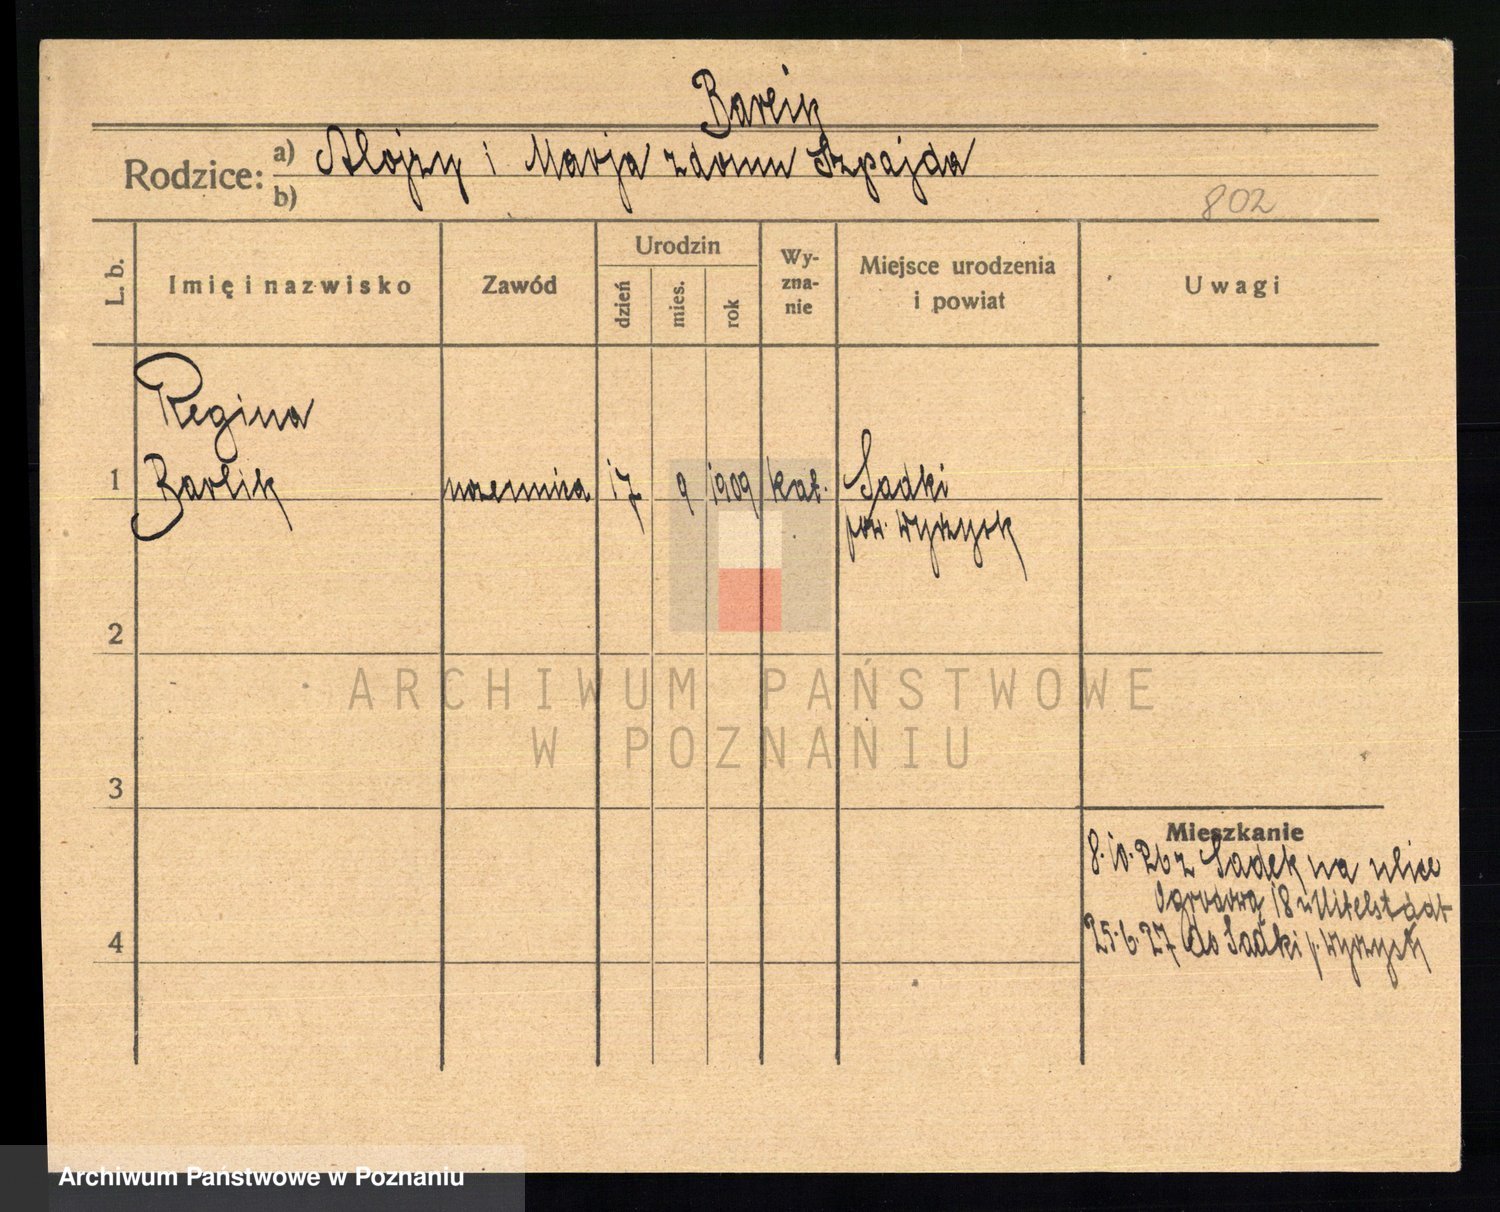 Barlik
Rodzice: a) Alojzy i Marja z domu Szpajda
b)
802
L. b.
Imię i nazwisko
Zawód
Urodzin
dzień
mies.
rok
Wy-
zna-
nie
Miejsce urodzenia
i powiat
Uwagi
Regina
1 Barlik uczennica 17 9 1909 kat. Sadki
pow. Wyrzysk
2
ARCHIWUM PAŃSTWOWE
W POZNANIU
3
Mieszkanie
8.10.26 z Sadek na ulice
Ogrodową 18
4
25.6.27 do Sadki p. Wyrzysk
Archiwum Państwowe w Poznaniu